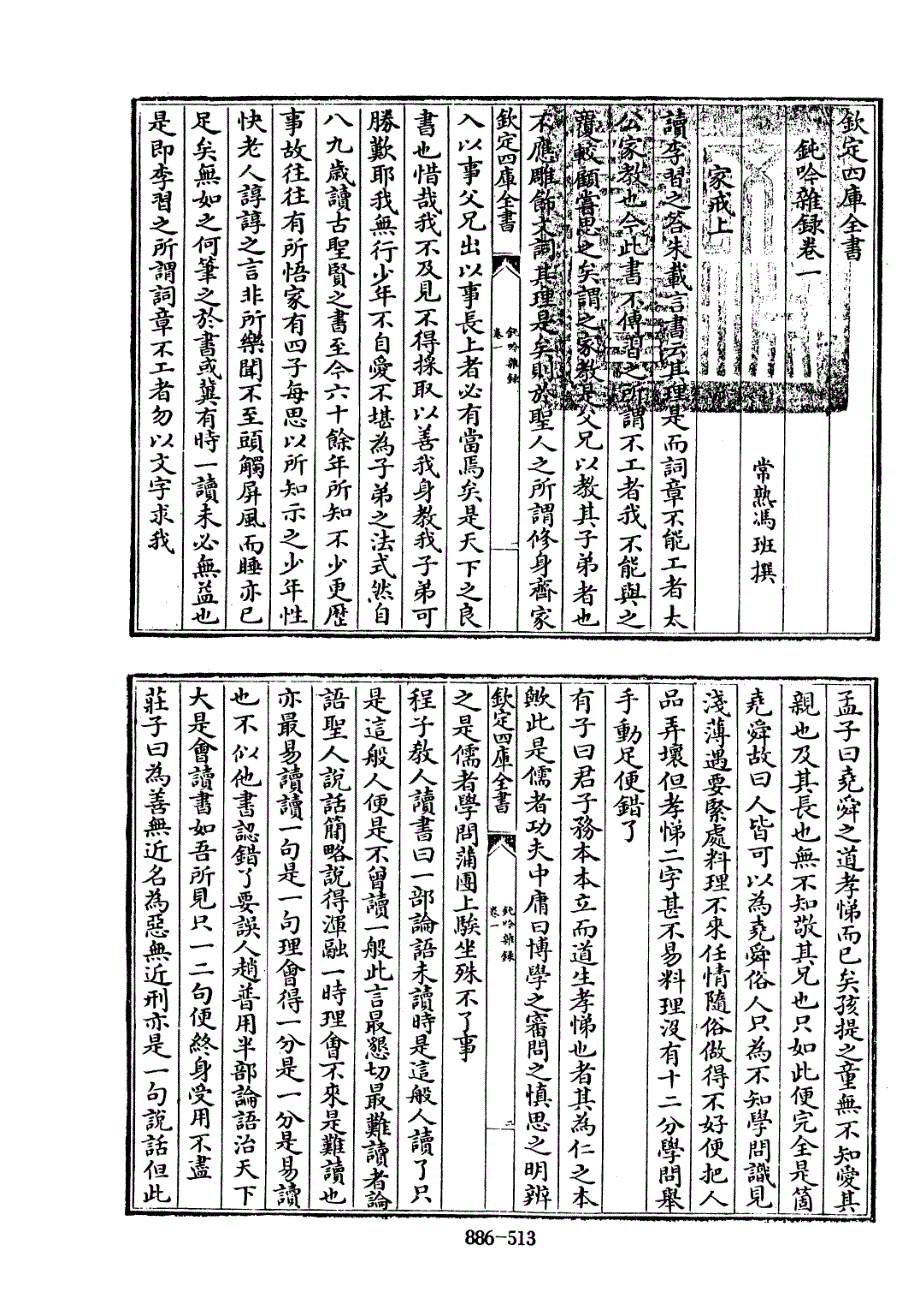 欽定四庫全書
鈍吟雜録卷一
常熟馮班撰
家戒上
讀李習之答朱載言書云其理是而詞章不能工者太
公家教也今此書不傳習之所謂不工者我不能與之
覆較顧嘗思之矣謂之家教是父兄以教其子弟者也
不應雕飾文詞其理是矣則於聖人之所謂修身齊家
欽定四庫全書
鈍吟雜録
卷一
一
入以事父兄出以事長上者必有當焉矣是天下之良
書也惜哉我不及見不得採取以善我身教我子弟可
勝歎耶我無行少年不自愛不堪為子弟之法式然自
八九歲讀古聖賢之書至今六十餘年所知不少更歴
事故往往有所悟家有四子每思以所知示之少年性
快老人諄諄之言非所樂聞不至頭觸屏風而睡亦已
足矣無如之何筆之於書或冀有時一讀未必無益也
是即李習之所謂詞章不工者勿以文字求我
孟子曰堯舜之道孝悌而已矣孩提之童無不知愛其
親也及其長也無不知敬其兄也只如此便完全是箇
堯舜故曰人皆可以為堯舜俗人只為不知學問識見
淺薄遇要緊處料理不來任情隨俗做得不好便把人
品弄壞但孝悌二字甚不易料理没有十二分學問舉
手動足便錯了
有子曰君子務本本立而道生孝悌也者其為仁之本
歟此是儒者功夫中庸曰博學之審問之慎思之明辨
欽定四庫全書
鈍吟雜録
卷一
二
之是儒者學問蒲團上騃坐殊不了事
程子教人讀書曰一部論語未讀時是這般人讀了只
是這般人便是不曾讀一般此言最懇切最難讀者論
語聖人說話簡略說得渾融一時理會不來是難讀也
亦最易讀讀一句是一句理會得一分是一分是易讀
也不似他書認錯了要誤人趙普用半部論語治天下
大是會讀書如吾所見只一二句便終身受用不盡
莊子曰為善無近名為惡無近刑亦是一句說話但此
886-513